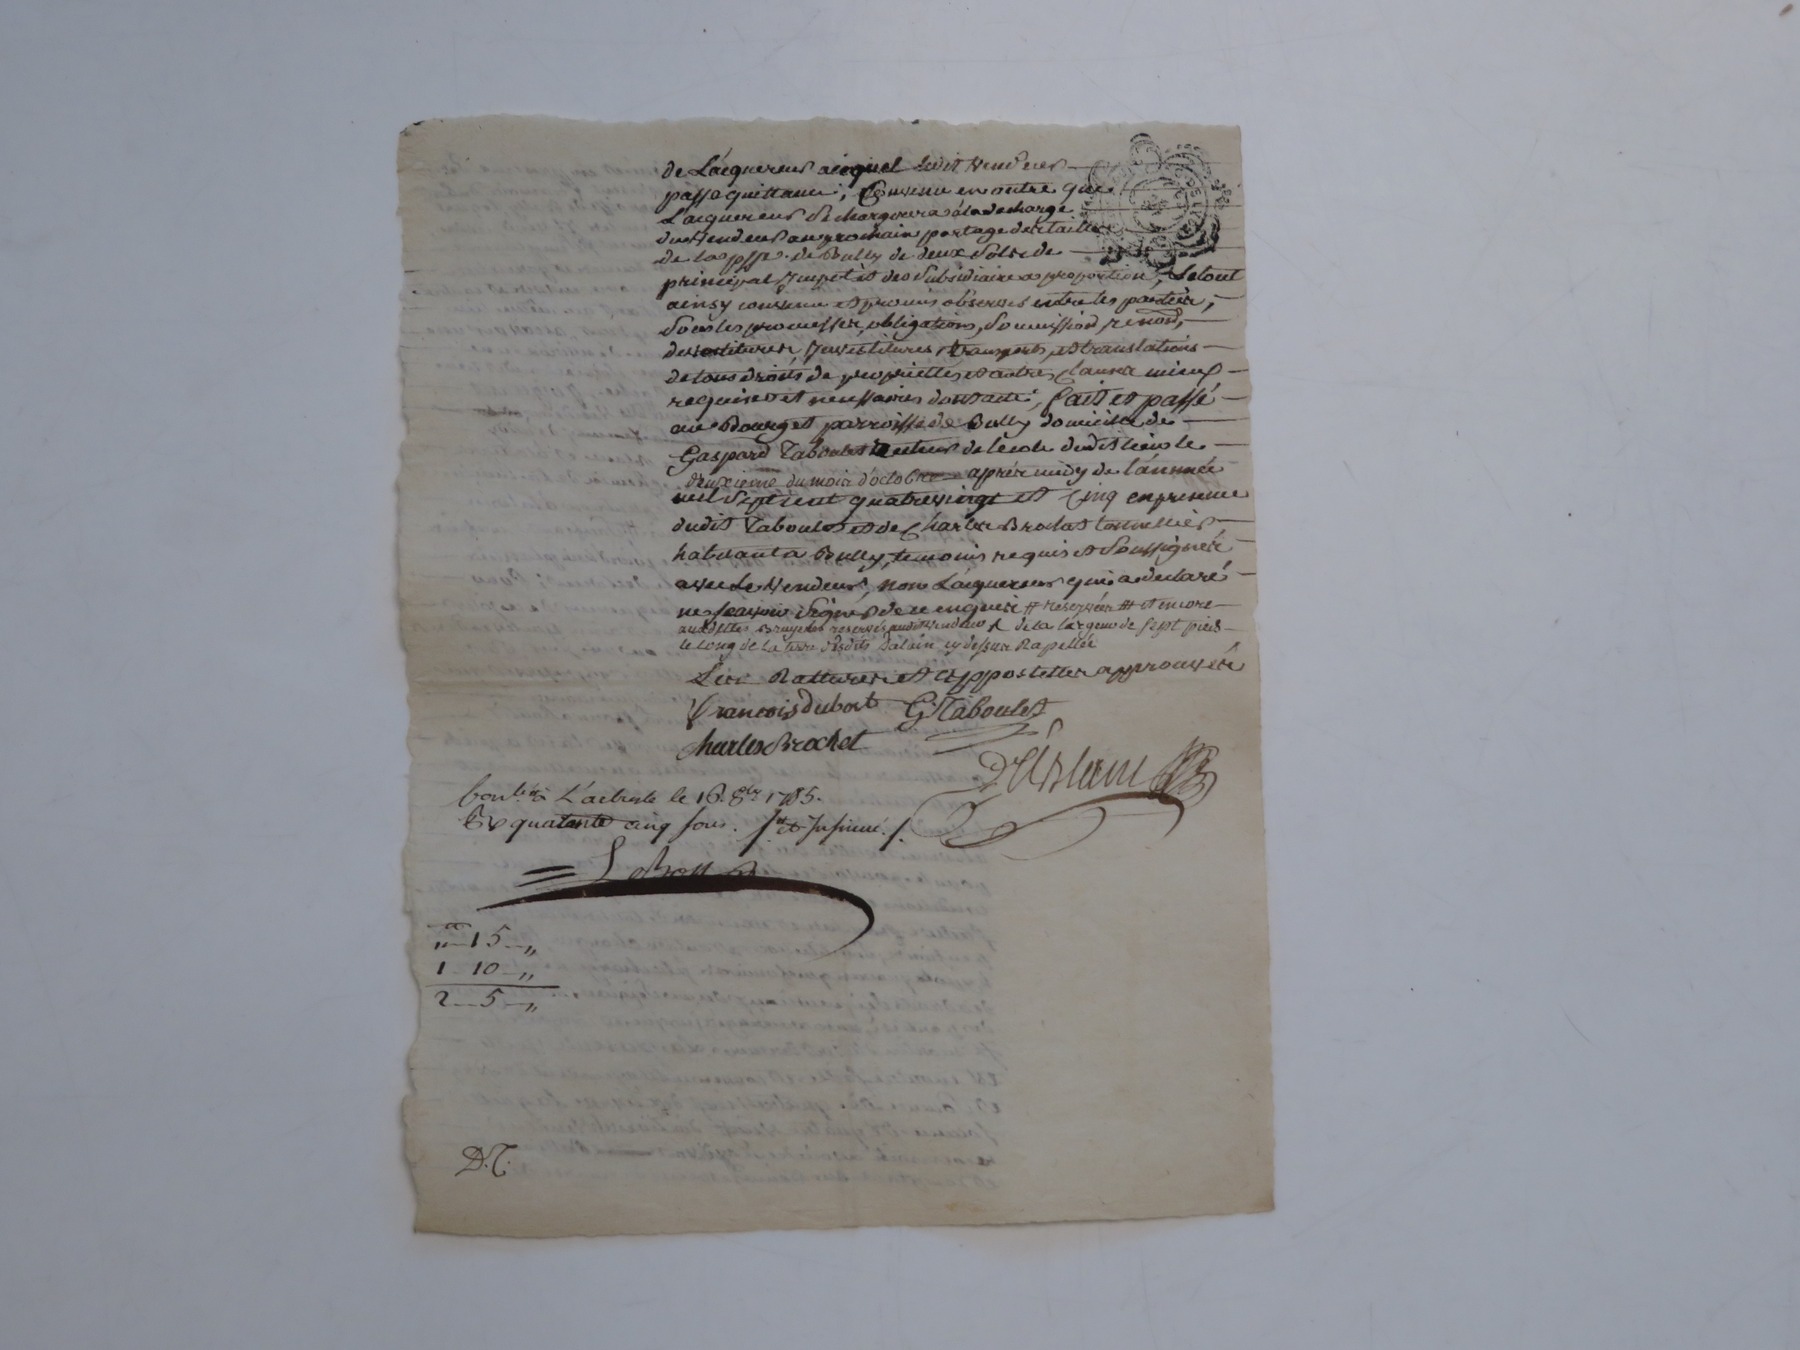 de L'acquereur auquel ledit Vendeur
passe quittance; Convenu en outre que
L'acquereur se chargera à la decharge
du Vendeur au prochain partage des tailles
de la psse. de Bully de deux sols de
principal Impôt et des subsidiaire a proportion, Le tout
ainsy convenu et promis observer entre les parties,
sous les promesses, obligations, soumissions, renon.
devestitures Investitures, transports, et translations
de tous droits de proprietté et autres Clauses mieux
requises et necessaires dont acte, fait et passé
au Bourg et parroisse de Bully domicille de
Gaspard Taboulet Recteur de l'école dudit lieu le
deuxieme du mois d'octobre après midy de l'année
mil sept cent quatrevingt et Cinq en presence
dudit Taboulet et de Charles Brochet tonnellier
habitant a Bully, temoins requis et soussignés
avec Le Vendeur, non L'acquereur qui a declaré
ne scavoir signer de ce enquis # reservées # et encore
auxdittes Bruyeres reservés audit Vendeur & de la largeur de sept pieds
le long de la terre desdits Dalain cy dessus Rapellée
Les Ratures et appostilles approuvées
François dubost G. Taboulet
Charles Brochet
Con.lé à L'arbresle le 16. 8bre 1785.
R quarante cinq sous. st et Insinué.
" 15 "
1 10 "
2 5 "
D.T.